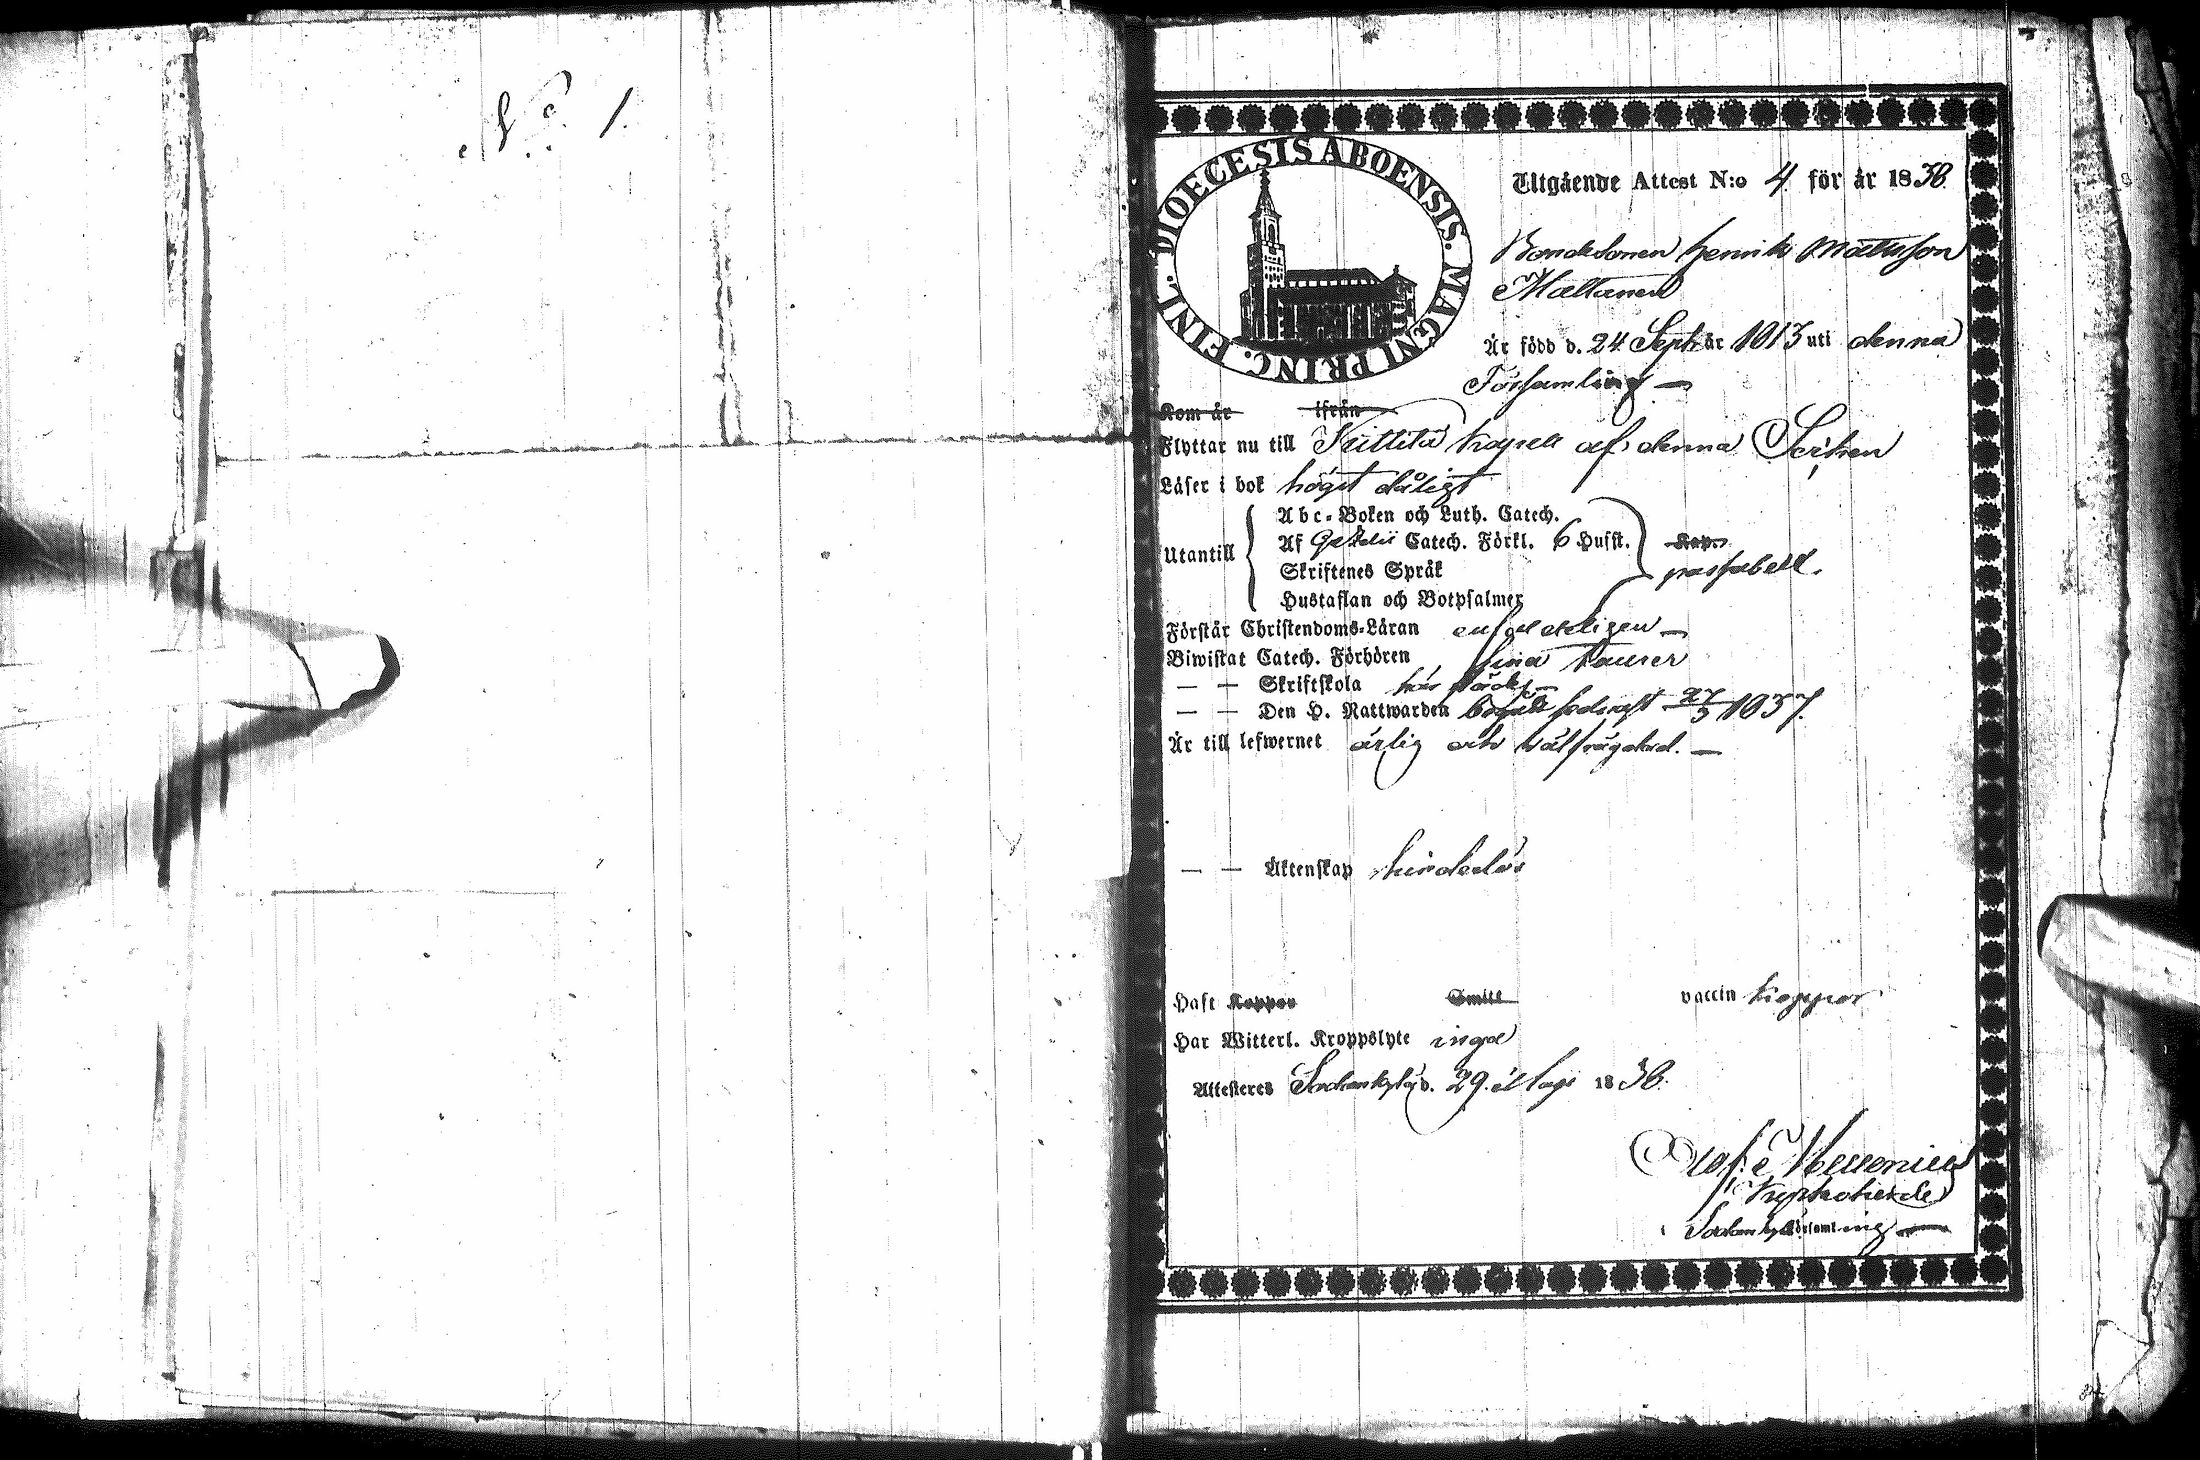 N:o 1.
DIOECESIS ABOENSIS. MAGNI PRINC. FINL.
Utgående Attest N:o 4 för år 1838.
Bondesonen Henrik Mattsson
Mattanen
Är född d. 24 Sept. år 1813 uti denna
Församling —
Kom år ifrån
Flyttar nu till Kittilä kapell af denna Socken
Läser i bok högst dåligt
Abc-Boken och Luth. Catech.
Utantill Af Gezelii Catech. Förkl. 6 Husst. Kap.
Skriftenes Språk passabelt.
Hustaflan och Botpsalmer
Förstår Christendoms-Läran enfaldeligen —
Biwistat Catech. Förhören sina kurser
— — Skriftskola här städes —
— — Den H. Nattwarden begått sednast 27/3 1837.
Är till lefwernet ärlig och wälfrägdad. —
— — Äktenskap hinderlös
Haft Koppor Smitt vaccin koppor
Har Witterl. Kroppslyte inga
Attesteres Sodankylä d. 29. Maji 1838.
i Sodankylä församling —